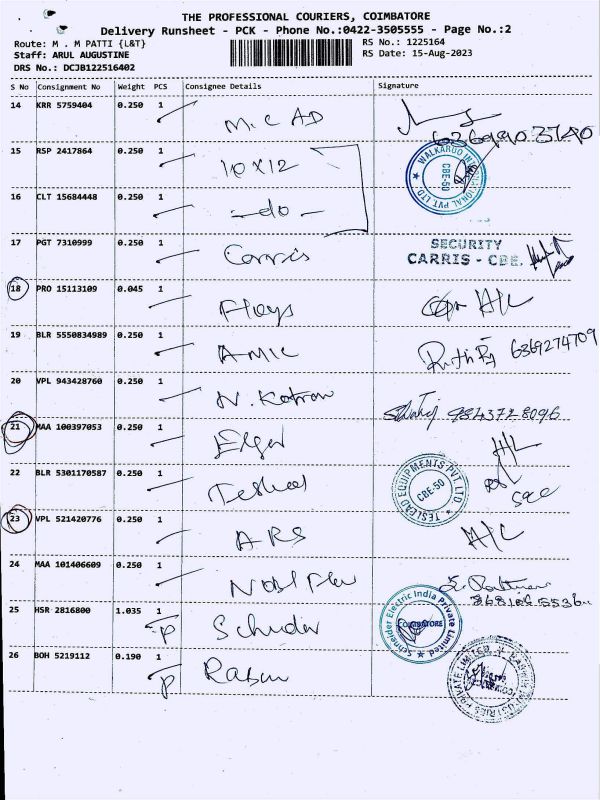 THE PROFESSIONAL COURIERS, COIMBATORE
Delivery Runsheet - PCK - Phone No.:0422-3505555 - Page No.:2
Route: M . M PATTI {L&T} RS No.: 1225164
Staff: ARUL AUGUSTINE RS Date: 15-Aug-2023
DRS No.: DCJB122516402
S No Consignment No Weight PCS Consignee Details Signature
14 KRR 5759404 0.250 1 M.C AD
15 RSP 2417864 0.250 1 10x12 WALKAROO INTERNATIONAL PVT LTD CBE-50
16 CLT 15684448 0.250 1 -do-
17 PGT 7310999 0.250 1 Carris SECURITY
CARRIS - CBE.
18 PRO 15113109 0.045 1
19 BLR 5550834989 0.250 1 AMIC 6369274709
20 VPL 943428760 0.250 1 9843728096
21 MAA 100397053 0.250 1 Elgi
22 BLR 5301170587 0.250 1 Teslead TESLEAD EQUIPMENTS PVT. LTD CBE-50
23 VPL 521420776 0.250 1 ARS A/C
24 MAA 101406609 0.250 1
25 HSR 2816800 1.035 1 P Schnider Schneider Electric India Private Limited COIMBATORE
26 BOH 5219112 0.190 1 P